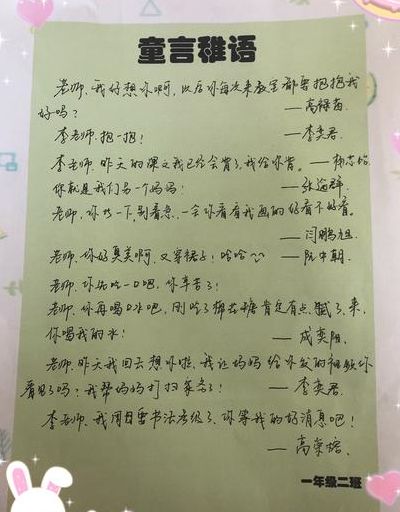 童言稚语
老师、我好想你啊,以后你每次来教室都要抱抱我
好吗?
李老师、抱一抱! —李奕君
李老师、昨天的课文我已经会背了,我给你背。
你就是我们另一个妈妈! —张海群
老师、你等一下,别着急,一会你看看我画的好看不好看。
老师、你好美啊,又穿裙子!哈哈~~
老师、你先吃一口吧,你辛苦了!
老师、你再喝口水吧,刚吃了棉花糖肯定有点腻了,来,
你喝我的水! —成奕阳
老师、昨天我回去想你啦,我让妈妈给你发的视频你
看见了吗?我帮妈妈打扫家务了! —李奕君
李老师、我周日要书法考级了、你等我的好消息吧!
一年级二班